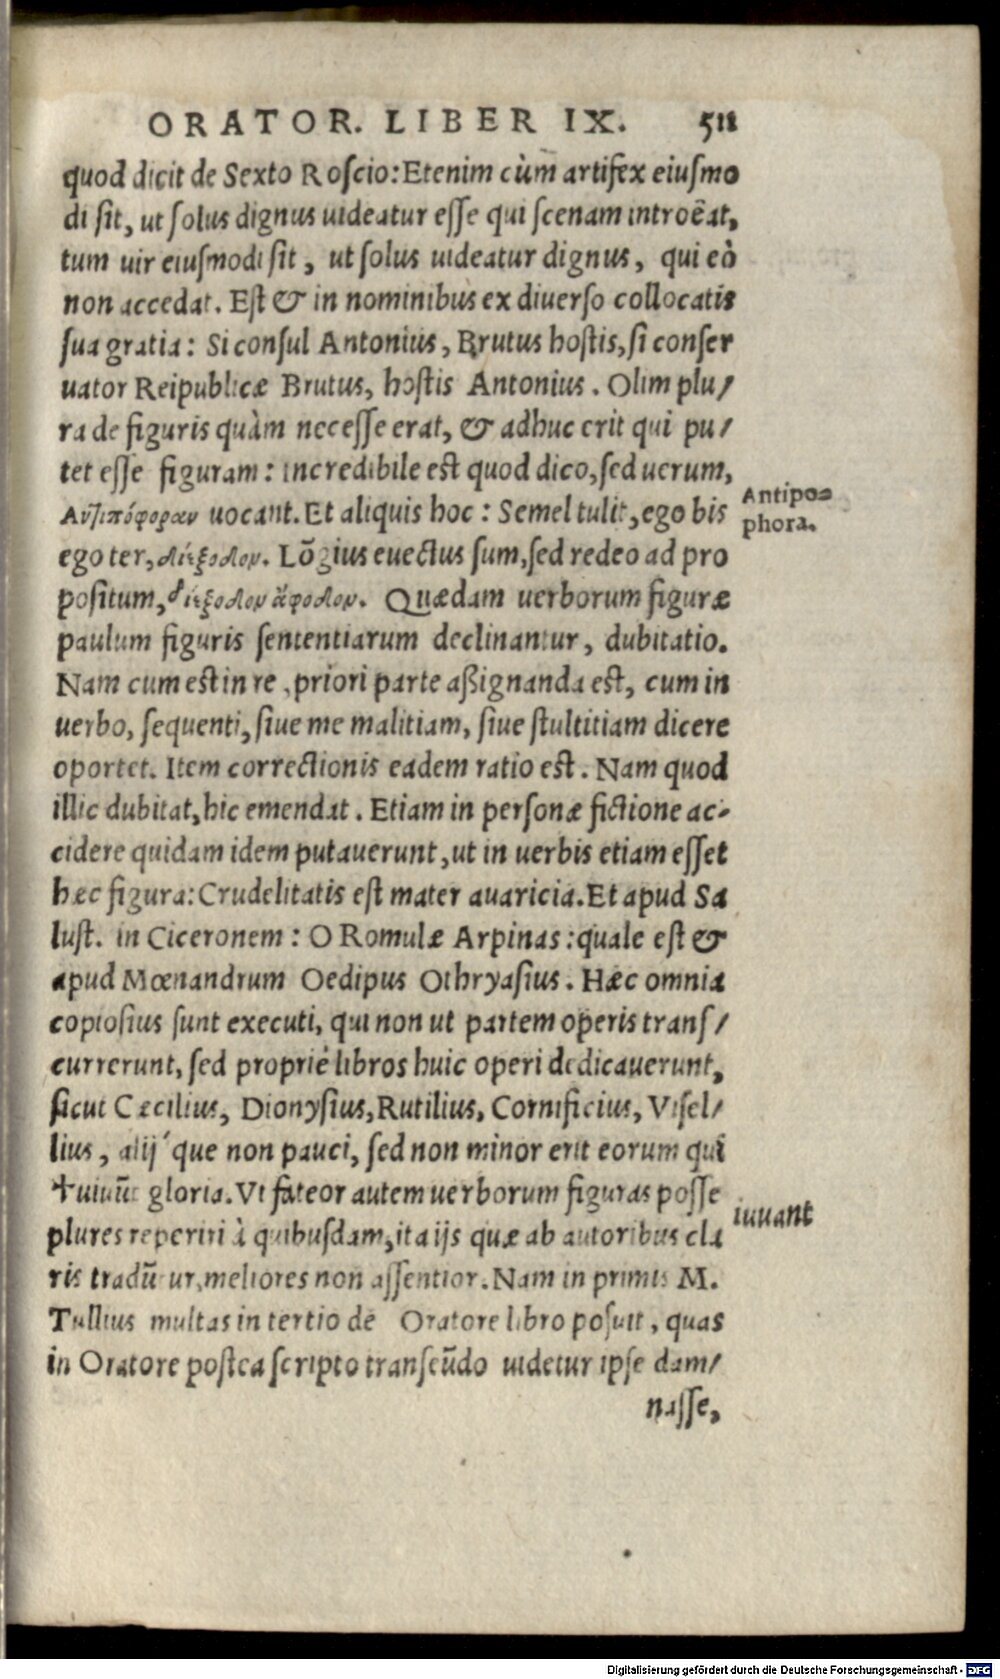 ORATOR. LIBER IX. 511
quod dicit de Sexto Roscio: Etenim cùm artifex eiusmo
di sit, ut solus dignus uideatur esse qui scenam introëat,
tum uir eiusmodi sit, ut solus uideatur dignus, qui eò
non accedat. Est & in nominibus ex diuerso collocatis
sua gratia: Si consul Antonius, Brutus hostis, si conser
uator Reipublicæ Brutus, hostis Antonius. Olim plu/
ra de figuris quàm necesse erat, & adhuc erit qui pu/
tet esse figuram: incredibile est quod dico, sed uerum,
Ἀνθιπόφοραν uocant. Et aliquis hoc: Semel tulit, ego bis
Antipo=
phora.
ego ter, διέξοδον. Lõgius euectus sum, sed redeo ad pro
positum, διέξοδον ἄφοδον. Quædam uerborum figuræ
paulum figuris sententiarum declinantur, dubitatio.
Nam cum est in re, priori parte aßignanda est, cum in
uerbo, sequenti, siue me malitiam, siue stultitiam dicere
oportet. Item correctionis eadem ratio est. Nam quod
illic dubitat, hic emendat. Etiam in personæ fictione ac-
cidere quidam idem putauerunt, ut in uerbis etiam esset
hæc figura: Crudelitatis est mater auaricia. Et apud Sa
lust. in Ciceronem: O Romulæ Arpinas: quale est &
apud Mœnandrum Oedipus Othryasius. Hæc omnia
copiosius sunt executi, qui non ut partem operis trans/
currerunt, sed propriè libros huic operi dedicauerunt,
sicut Cæcilius, Dionysius, Rutilius, Cornificius, Visel/
lius, alij´que non pauci, sed non minor erit eorum qui
✝uiuũt gloria. Vt fateor autem uerborum figuras posse
iuuant
plures reperiri à quibusdam, ita ijs quæ ab autoribus cla
ris tradũtur, meliores non assentior. Nam in primis M.
Tullius multas in tertio de Oratore libro posuit, quas
in Oratore postea scripto transeũdo uidetur ipse dam/
nasse,
Digitalisierung gefördert durch die Deutsche Forschungsgemeinschaft - DFG